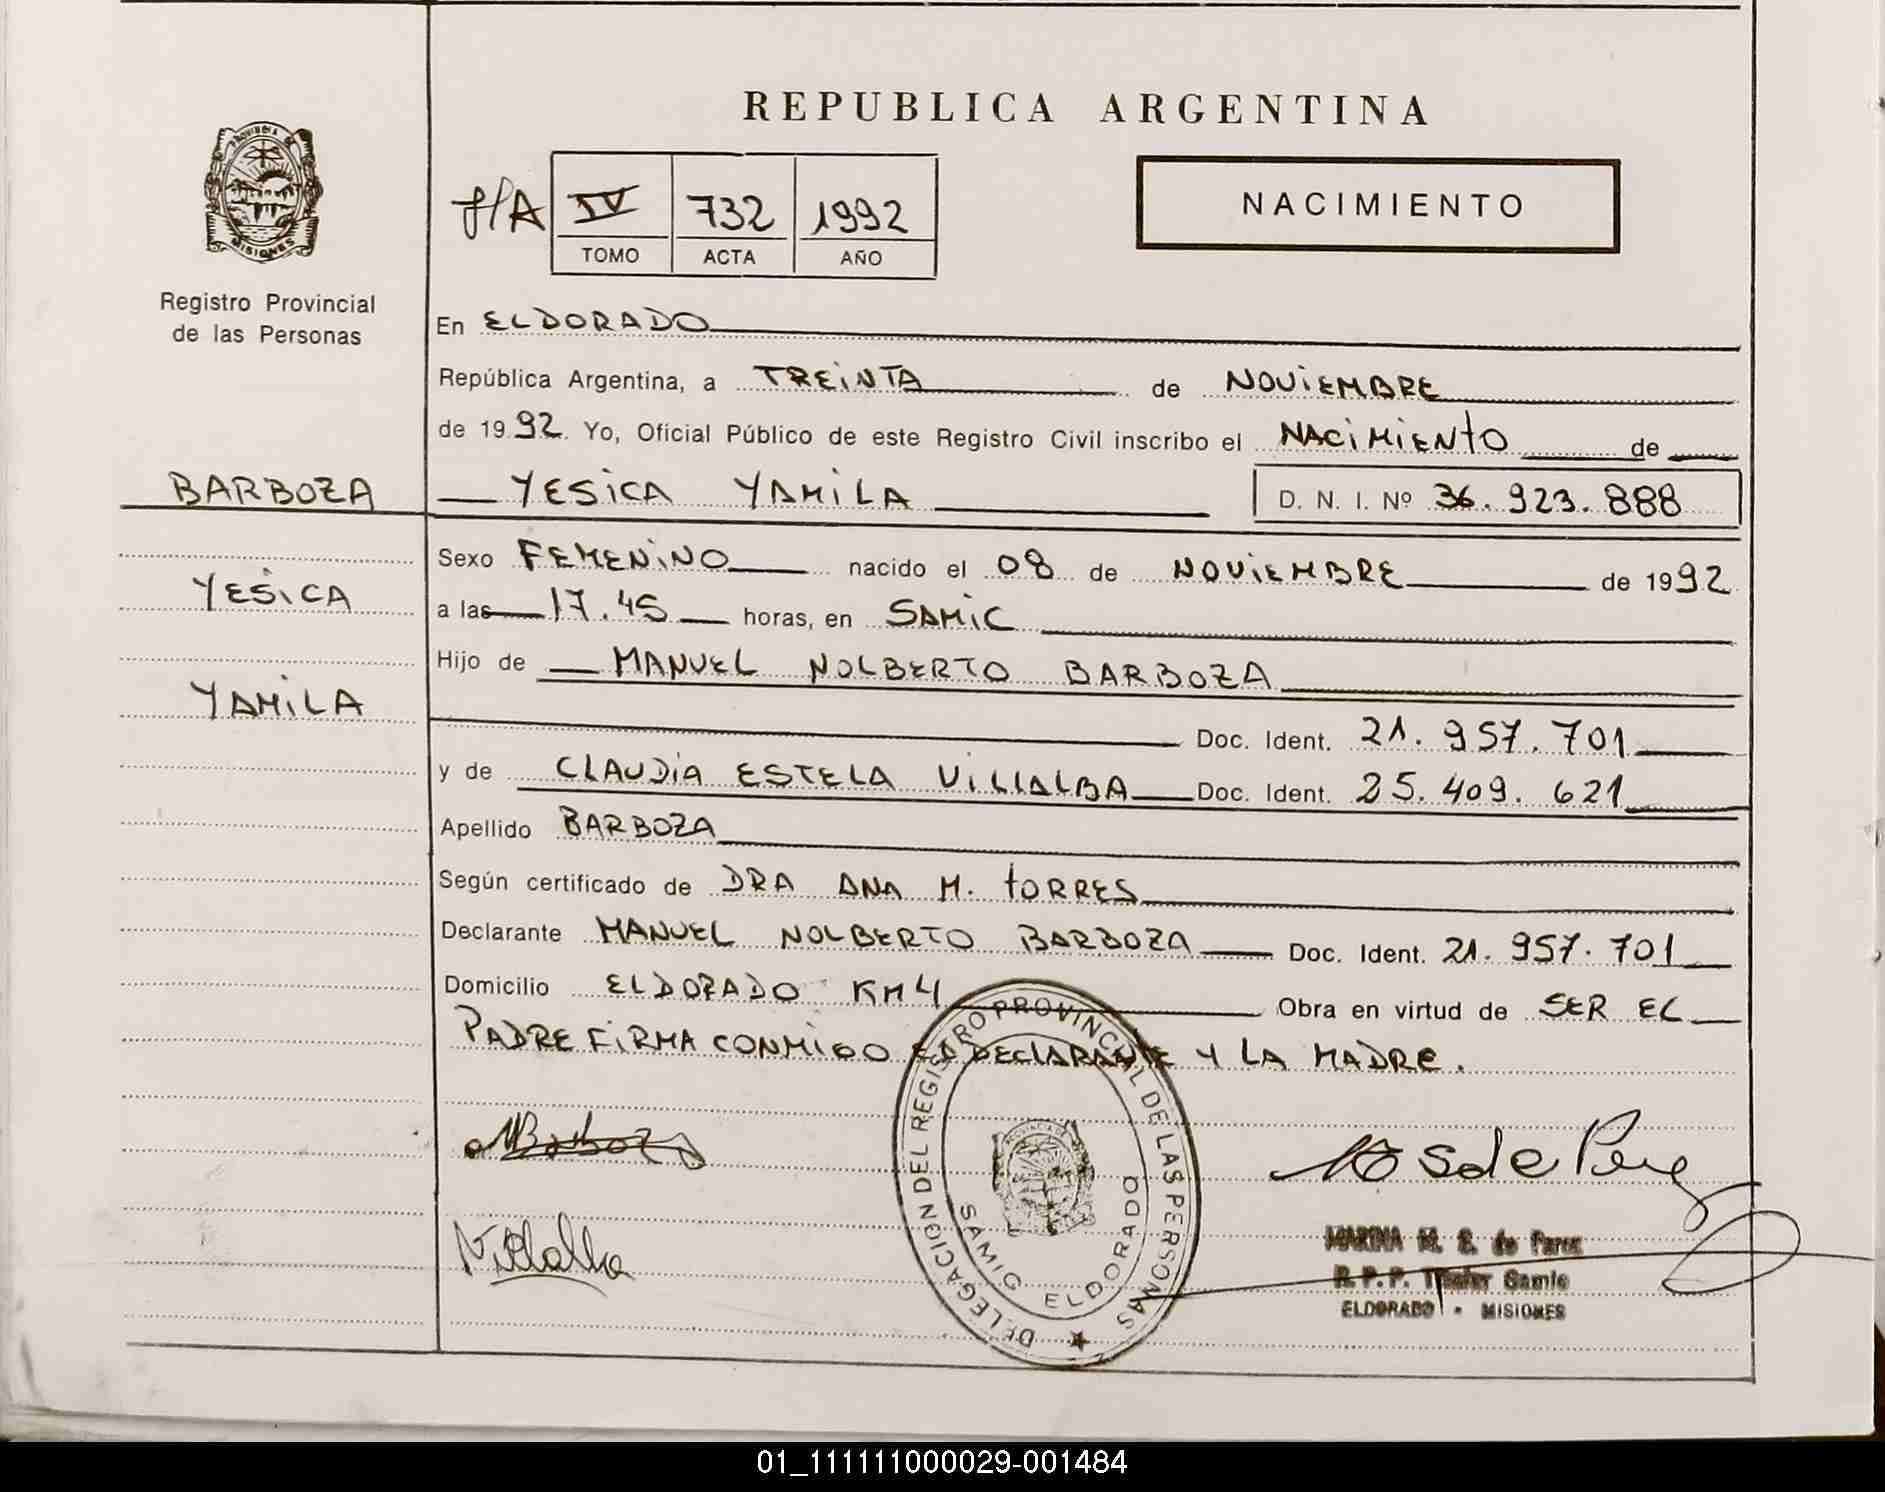 REPUBLICA ARGENTINA
PROVINCIA DE MISIONES
Registro Provincial
de las Personas
F/A IV 732 1992
TOMO ACTA AÑO
NACIMIENTO
En ELDORADO
República Argentina, a TREINTA de NOVIEMBRE
de 1992. Yo, Oficial Público de este Registro Civil inscribo el NACIMIENTO de
BARBOZA
YESICA YAMILA D. N. I. Nº 36.923.888
Sexo FEMENINO nacido el 08 de NOVIEMBRE de 1992
YESICA
a las 17.45 horas, en SAMIC
Hijo de MANUEL NOLBERTO BARBOZA
YAMILA
Doc. Ident. 21.957.701
y de CLAUDIA ESTELA VILLALBA Doc. Ident. 25.409.621
Apellido BARBOZA
Según certificado de DRA ANA M. TORRES
Declarante MANUEL NOLBERTO BARBOZA Doc. Ident. 21.957.701
Domicilio ELDORADO KM 4 Obra en virtud de SER EL
PADRE FIRMA CONMIGO EL DECLARANTE Y LA MADRE.
DELEGACION DEL REGISTRO PROVINCIAL DE LAS PERSONAS
SAMIC ELDORADO
MBarboza
Villalba
MARINA M. S. de
R.P.P. Titular Samic
ELDORADO - MISIONES
01_111111000029-001484